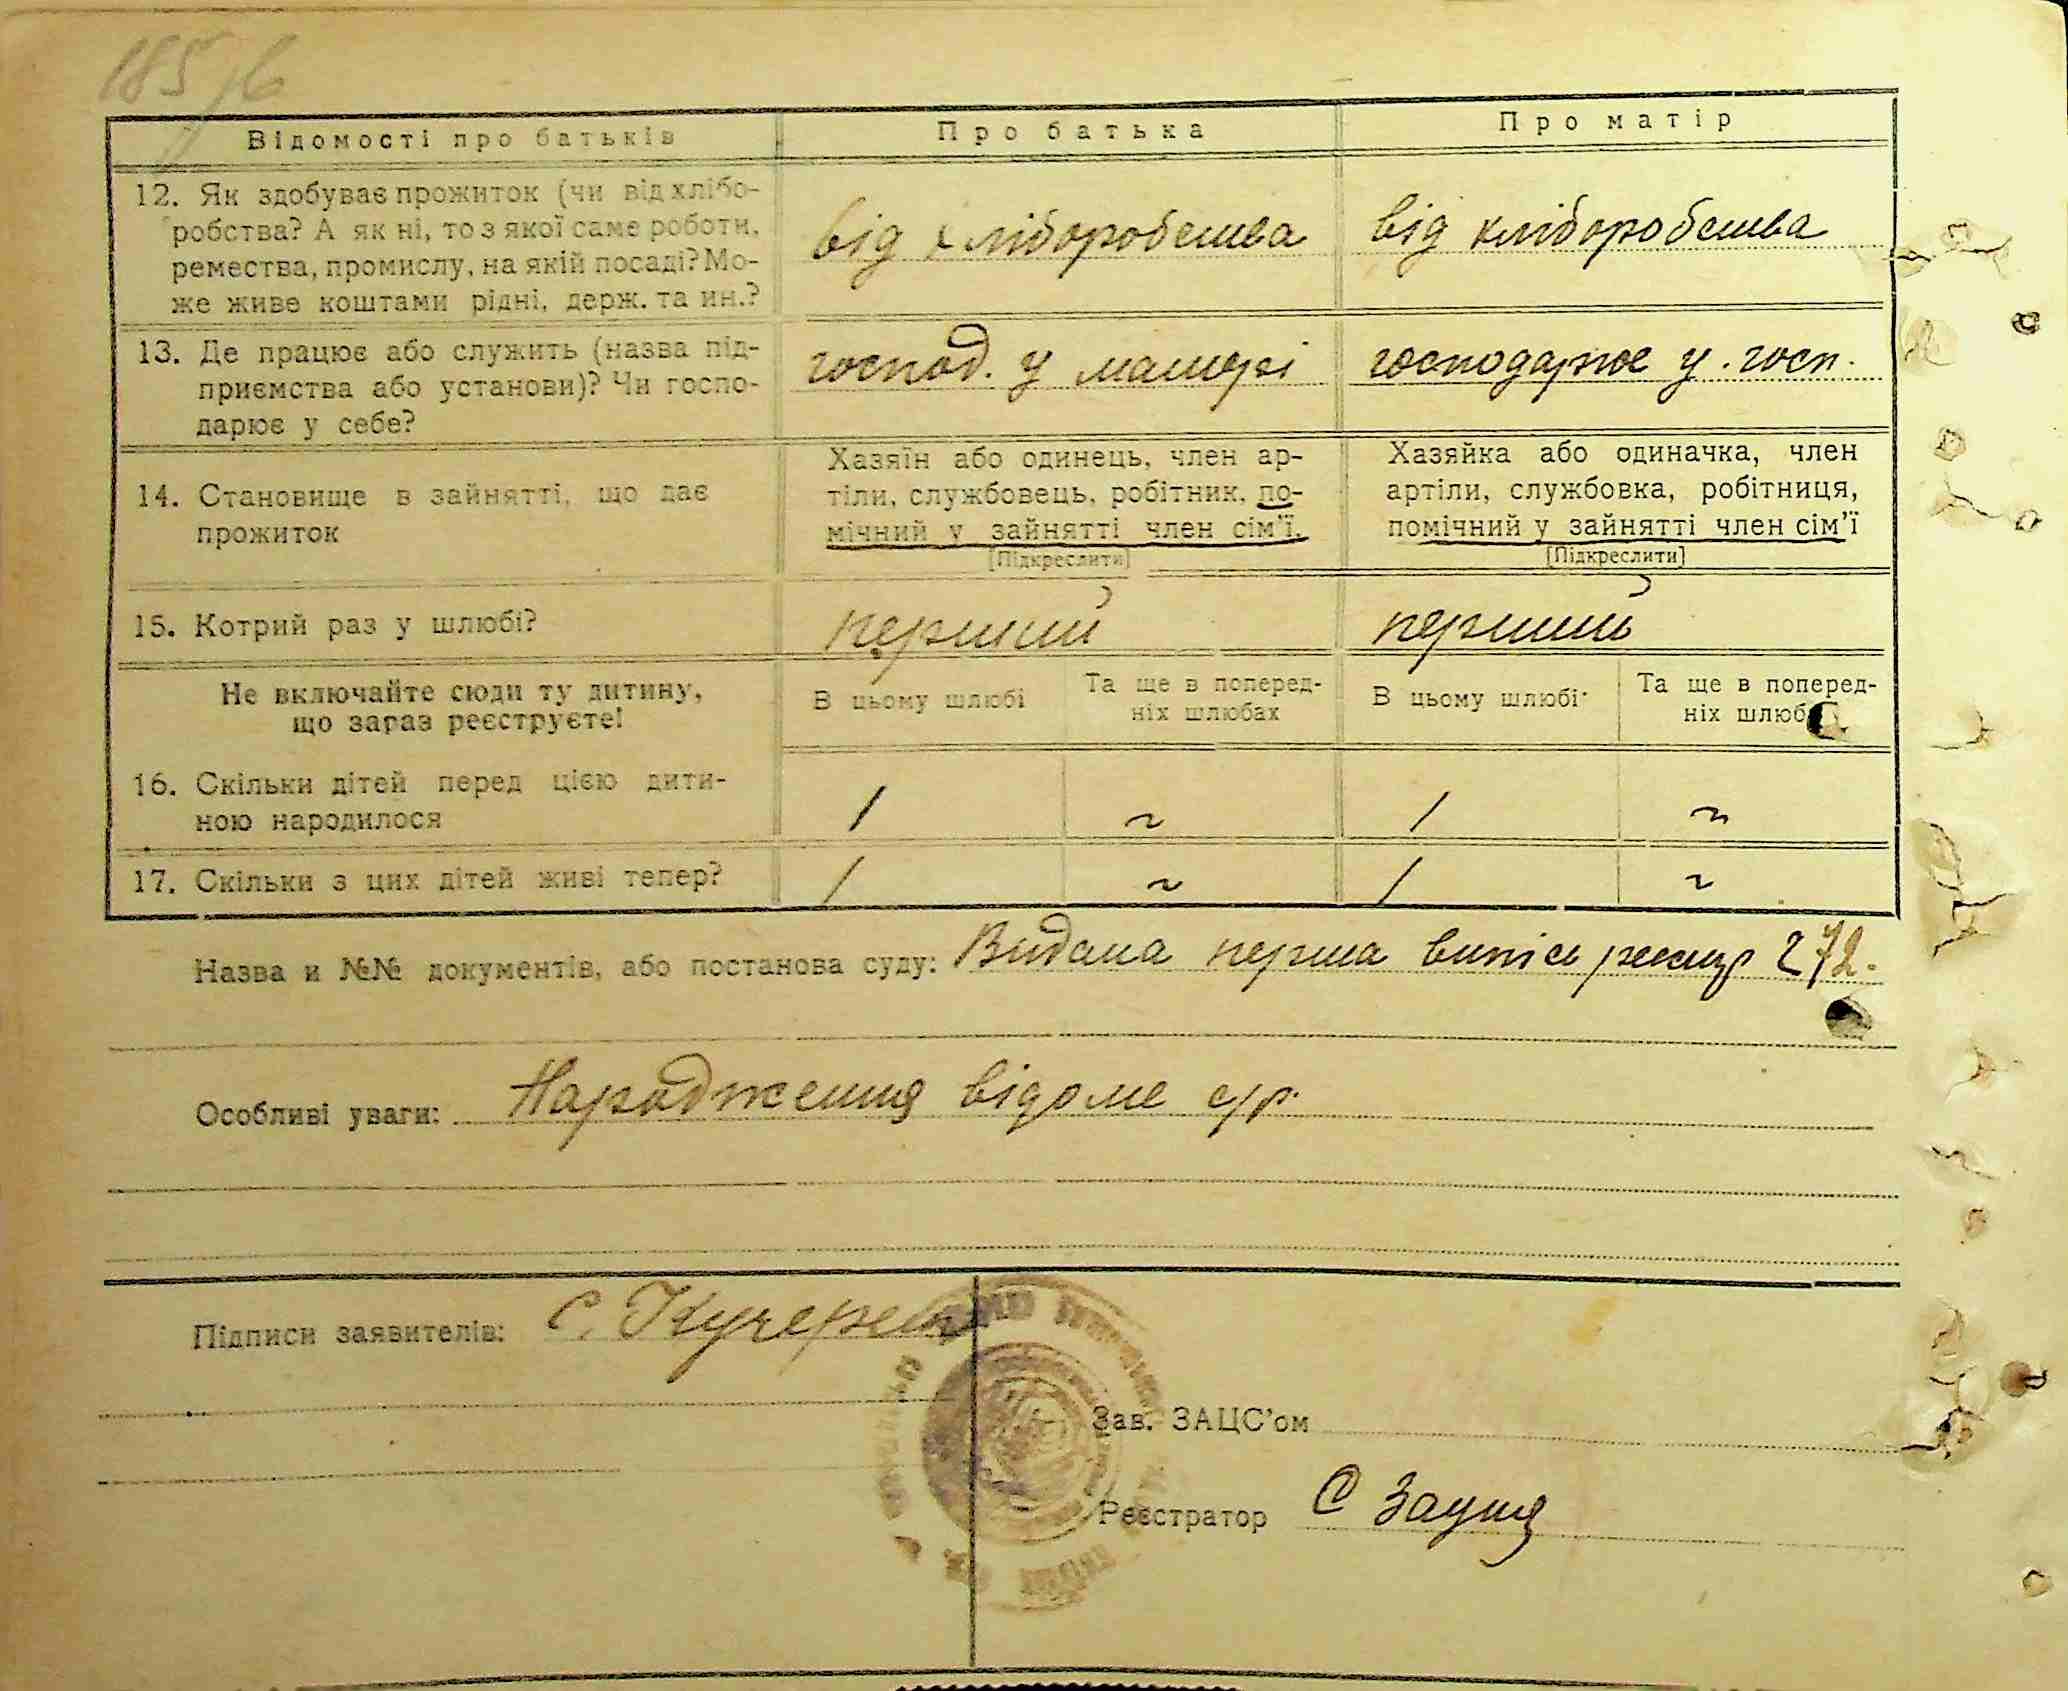 185 зв
Відомості про батьків
Про батька
Про матір
12. Як здобуває прожиток (чи від хлібо-
робства? А як ні, то з якої саме роботи,
ремества, промислу, на якій посаді? Мо-
же живе коштами рідні, держ. та ин.?
від хліборобства
від хліборобства
13. Де працює або служить (назва під-
приємства або установи)? Чи госпо-
дарює у себе?
господ. у матері
господарює у. госп.
14. Становище в зайнятті, що дає
прожиток
Хазяїн або одинець, член ар-
тіли, службовець, робітник, по-
мічний у зайнятті член сім'ї.
[Підкреслити]
Хазяйка або одиначка, член
артіли, службовка, робітниця,
помічний у зайнятті член сім'ї
[Підкреслити]
15. Котрий раз у шлюбі?
перший
перший
Не включайте сюди ту дитину,
що зараз реєструєте!
В цьому шлюбі
Та ще в поперед-
ніх шлюбах
В цьому шлюбі
Та ще в поперед-
ніх шлюб
16. Скільки дітей перед цією дити-
ною народилося
1 ~ 1 ~
17. Скільки з цих дітей живі тепер?
1 ~ 1 ~
Назва и №№ документів, або постанова суду: Видана перша випись реєстр 272.
Особливі уваги: Народження відоме с/р.
Підписи заявителів: С. Кучерен
Зав. ЗАЦС'ом
Реєстратор С Зауця